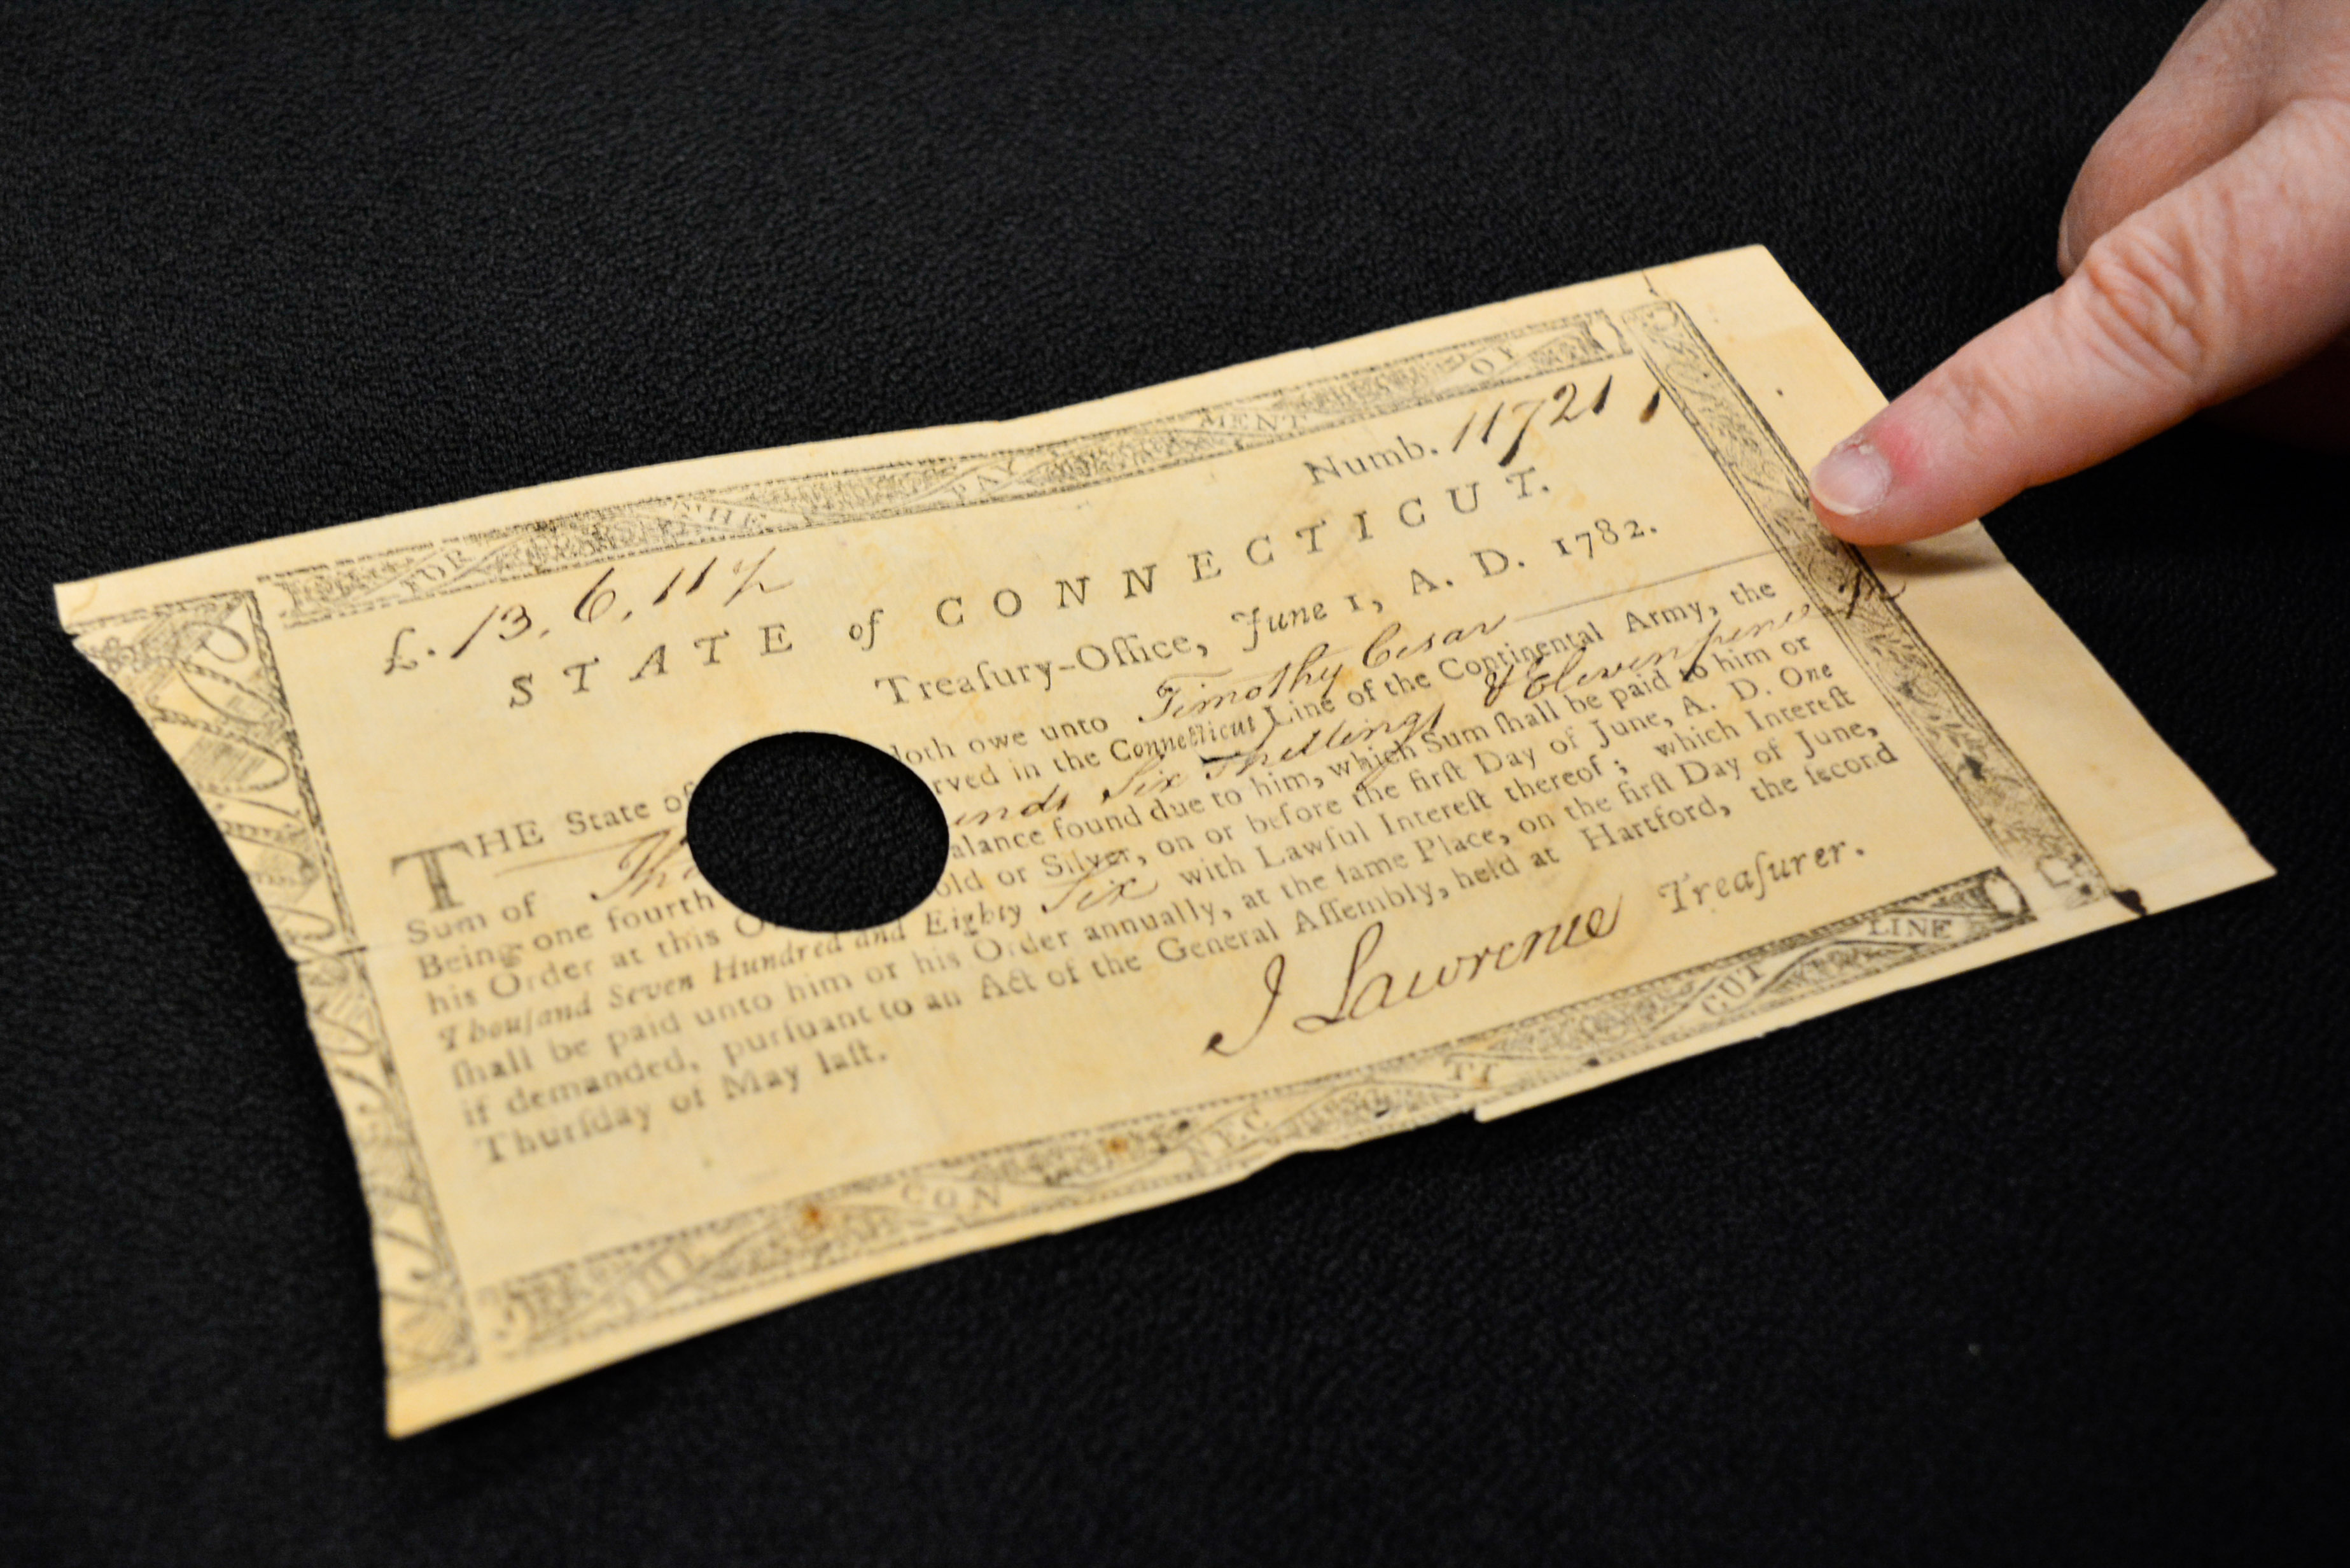 FOR THE PAY MENT OF
Numb. 11721
£. 13. 6. 11 ½
STATE of CONNECTICUT.
Treaſury-Office, June 1, A. D. 1782.
THE State of doth owe unto Timothy Cesar
rved in the Connecticut Line of the Continental Army, the
Sum of Th unds Six Shillings & Eleven pence
Being one fourth alance found due to him, which Sum ſhall be paid to him or
his Order at this O old or Silver, on or before the firſt Day of June, A. D. One
Thouſand Seven Hundred and Eighty Six with Lawful Intereſt thereof; which Intereſt
ſhall be paid unto him or his Order annually, at the ſame Place, on the firſt Day of June,
if demanded, purſuant to an Act of the General Aſſembly, held at Hartford, the ſecond
Thurſday of May laſt.
J Lawrence Treaſurer.
THE CON NEC TI CUT LINE